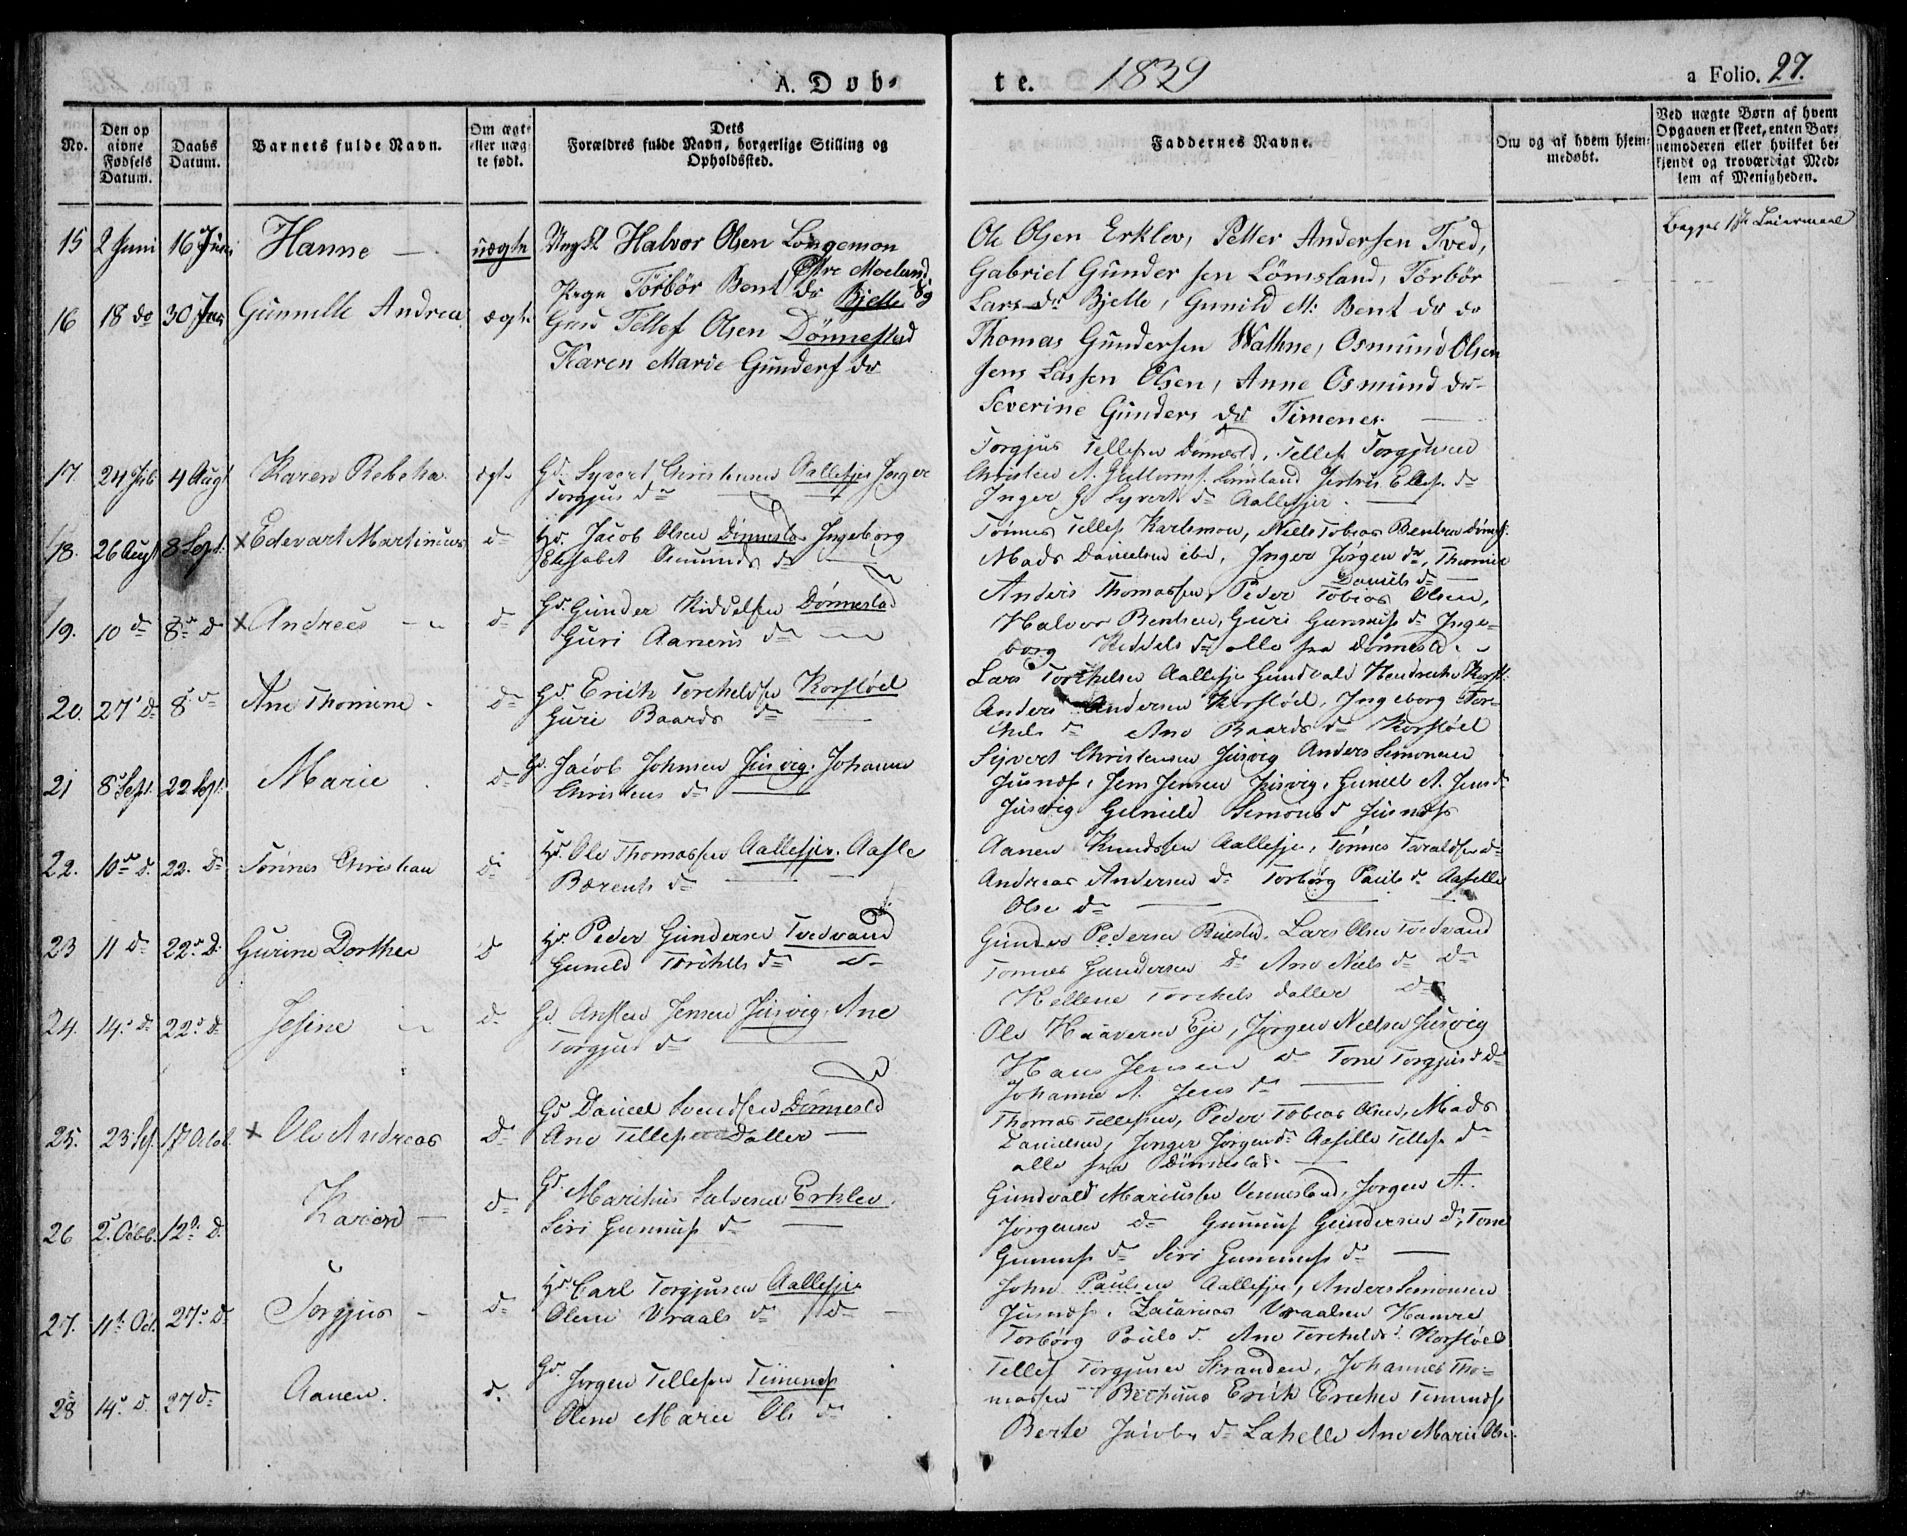 A. Døb-
te. 1839
a Folio. 27.
No.
Den op
givne
Fødsels
Datum.
Daabs
Datum.
Barnets fulde Navn.
Om ægte
eller uæg
te født.
Dets
Forældres fulde Navn, borgerlige Stilling og
Opholdssted.
Faddernes Navne.
Om og af hvem hjem-
medøbt.
Ved uægte Børn af hvem
Opgaven er skeet, enten Bar-
nemoderen eller hvilket be-
kjendt og troværdigt Med-
lem af Menigheden.
15 2 Juni 16 Juni Hanne — uægte Ungk Halvor Olsen Longemon
Østre Moelund
Pige Törbör Bent dr Bjelle
Ole Olsen Erklev, Petter Andersen Tved,
Gabriel Gunder sen Lömsland, Törbör
Lars dr Bjelle, Gunild M: Bent dr do
Begges 1ste Leiermaal
16 18 do 30 Juni Gunnille Andrea ægte Gaud Tellef Olsen Dönnestad
Karen Marie Gunders dr
Thomas Gundersen Wathne, Osmund Olsen
Jens Lassen Olsen, Anne Osmund dr
Severine Gunders dr Timenes
17. 24 Juli 4 Augt Karen Rebekka ægte Gd. Syvert Christensen Aallefjer Inger
Torgjus dr
Torgjus Tellefsen Dönnestd, Tellef Torgjusen
Christen A. Guttorms. Lömland Jertrus Ellef. dr
Inger G Syverts dr Aallefjer
18. 26 Augt 8 Sept. x Edevart Martinius d Hd. Jacob Olsen Dönnestd Ingeborg
Elisabet Asmunds dr
Tönnes Tellefs Karlsmon, Niels Tobias Bentsen Dönnes.
Mads Danielsen ibd, Inger Jörgen dr, Thomine
Daniels dr
19. 10 d 8 d x Andreas d Gd. Gunder Kiddelsen Dönnestad
Guri Aanens dr
Anders Thomassen, Peder Tobias Olsen,
Halvor Bentsen, Guri Gunnufs dr Inge-
borg Kiddels dr alle fra Dönnestd.
20. 27 d 8 d Ane Thomine d Gd. Erick Torchelsen Korslöed
Guri Baards dr
Lars Torchelsen Aallefje Gundvald Hendrechs Korsl.
Anders Andersen Korslöed, Ingeborg Tor-
chels dr Ane Baards dr Korslöed
21 8 Sept. 22 Sept. Marie d Gd. Jacob Johnsen Jusvig. Johanne
Christens dr
Syvert Christensen Jusvig Anders Simonsen
Jusnæs, Jens Jensen Jusvig, Gunild A. Jens dr
Jusvig Gunild Simons d Jusnæs
22. 10 d. 22. d Tönnes Christian d Hd. Ole Thomassen Aallefjer. Aasle
Bærents dr
Aanen Knudssen Aallefje, Tönnes Taraldsen d
Andreas Andersen d Torborg Pauls d Aasille
Olse dr
23 11 d 22 d. Gurine Dorthea d Hd. Peder Gundersen Tvedvand
Gunild Torchels dr d
Gunder Pedersen, Lars Olsen Tvedvand
Tönnes Gundersen d Ane Niels d d
Hellene Torchels datter d
24. 14 d 22 d Jesine d Gd. Ansten Jensen Jusvig, Ane
Torgjus dr
Ole Haaversen Eje, Jörgen Nielsen Jusvig
Hans Jensen d Tone Torgjus d d
Johanne A. Jens dr
25. 23 Sept. 17 Octob. x Ole Andreas d Gd Daniel Svendsen Dönnestd
Ane Tellefs Datter
Thomas Tellefsen, Peder Tobias Olsen, Mads
Danielsen, Inger Jörgens dr Aasille Tellefs dr
alle fra Dönnestad
26 2 Octb. 12 d Karen d Gd. Marthus Salvesen Erklev.
Siri Gunnufs dr
Gundvald Mariussen Vennesland, Jörgen A.
Jörgensen d Gunnuf Gundersen d, Tone
Gunnufs dr Siri Gunnufs dr
27. 11 Oct. 27 d Torgjus d Hd Carl Torgjusen Aallefjer
Olene Vraals dr d
John Paulsen Aallefje, Anders Simonsen
Jusnæs, Zacarias Vraalsen Hamre
Torborg Pouls d. Ane Torchelds d. Korslöed
28 14 d. 27 d Aanen. d. Gd. Jörgen Tellefsen Timenes
Olene Marie Ols dr
Tellef Torgjusen Stranden, Johannes Tho-
massen Erick Ericksen Timenes,
Berte Jacobs dr Lahelle Ane Marie Olse